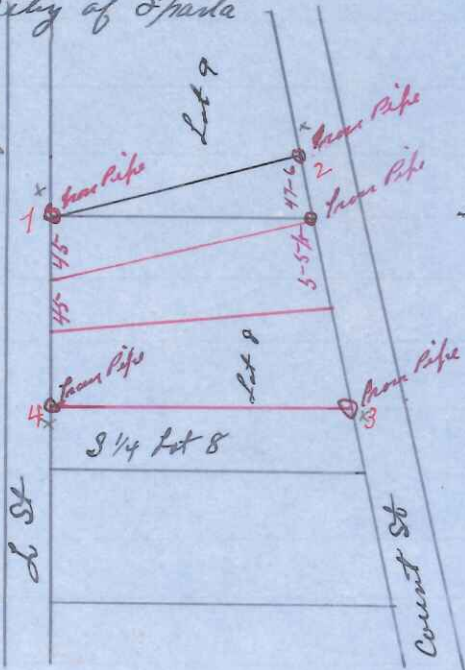 City of Sparta
Lot 9
Iron Pipe
Iron Pipe
1
2
47-6
Iron Pipe
45-
45-
Lot 8
Iron Pipe
Iron Pipe
4
3
S 1/4 Lot 8
L St
Court St